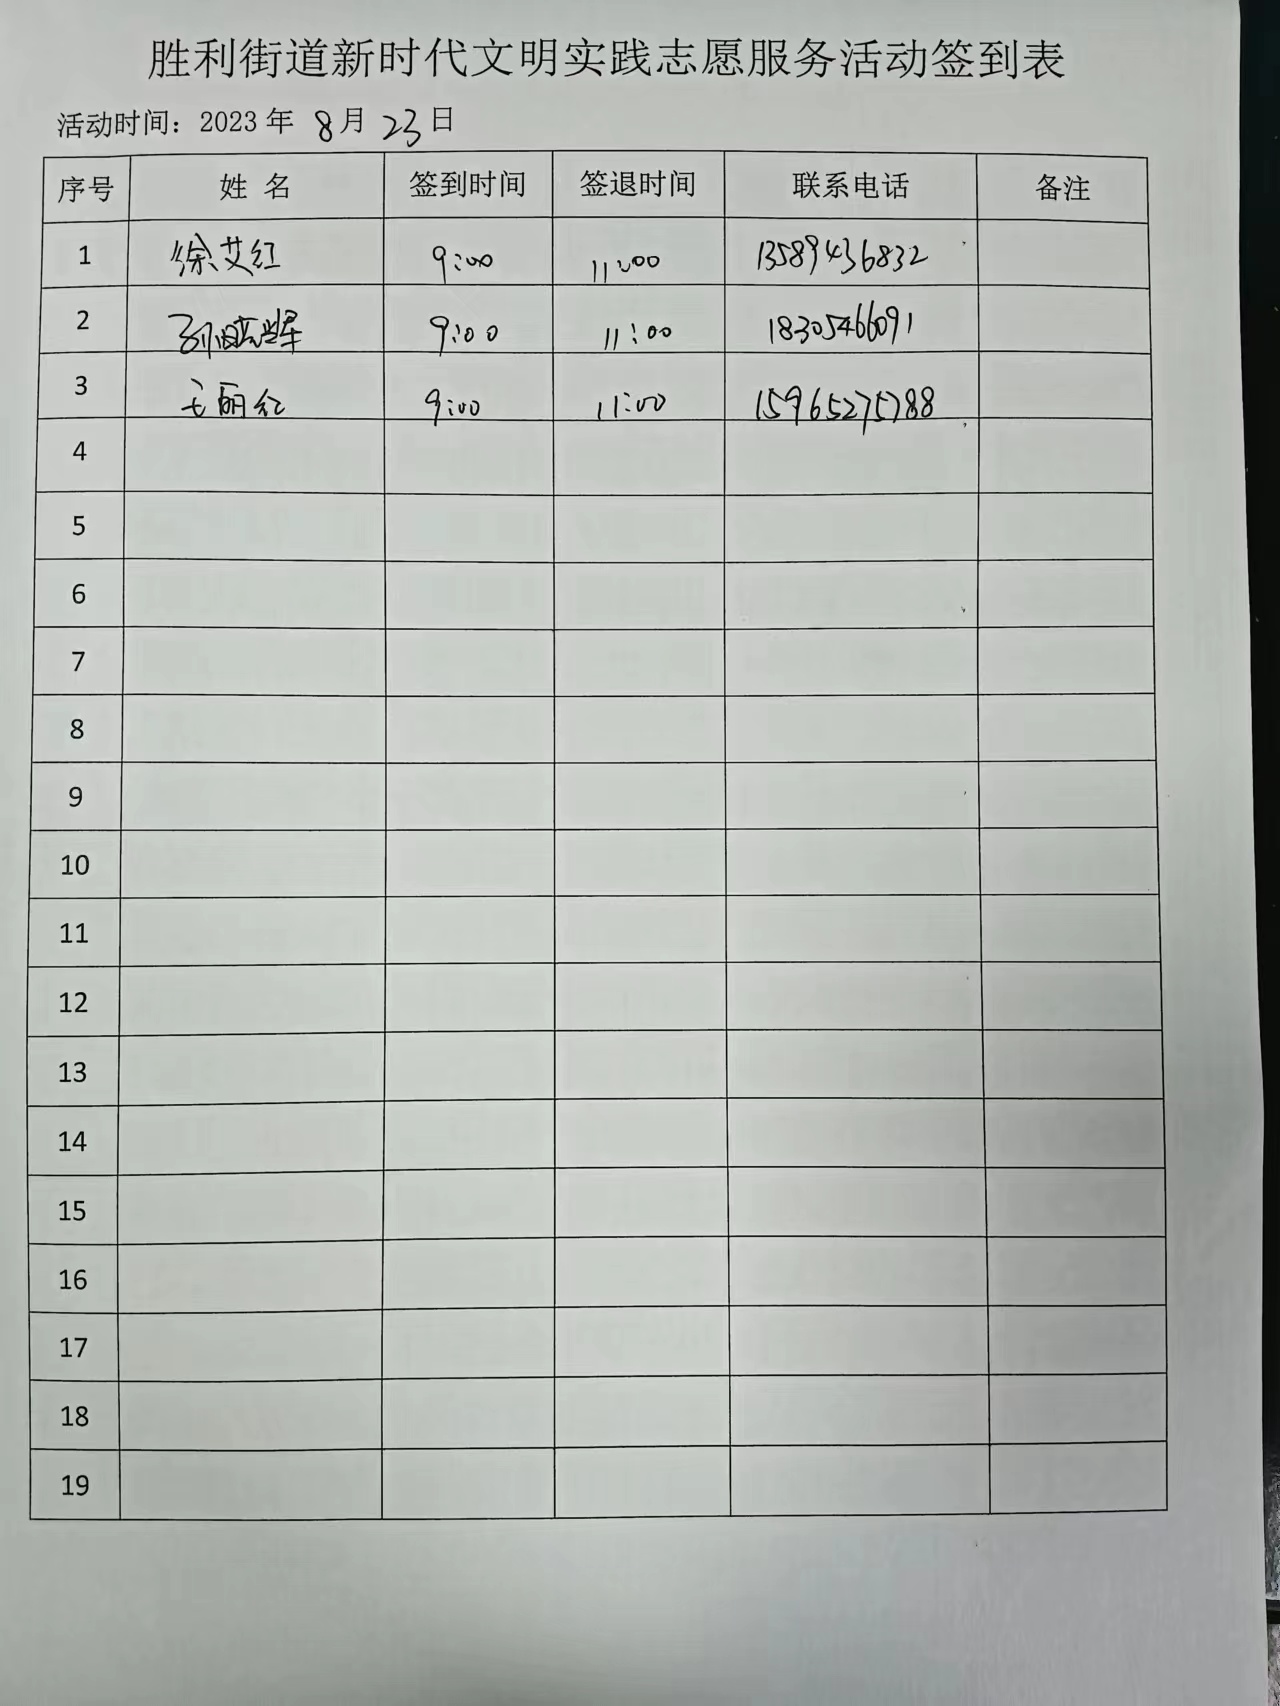 胜利街道新时代文明实践志愿服务活动签到表
活动时间：2023 年 8 月 23 日
序号 姓 名 签到时间 签退时间 联系电话 备注
1 徐艾红 9:00 11:00 13589436832
2 孙 9:00 11:00 18305466091
3 王丽红 9:00 11:00 15965275788
4
5
6
7
8
9
10
11
12
13
14
15
16
17
18
19